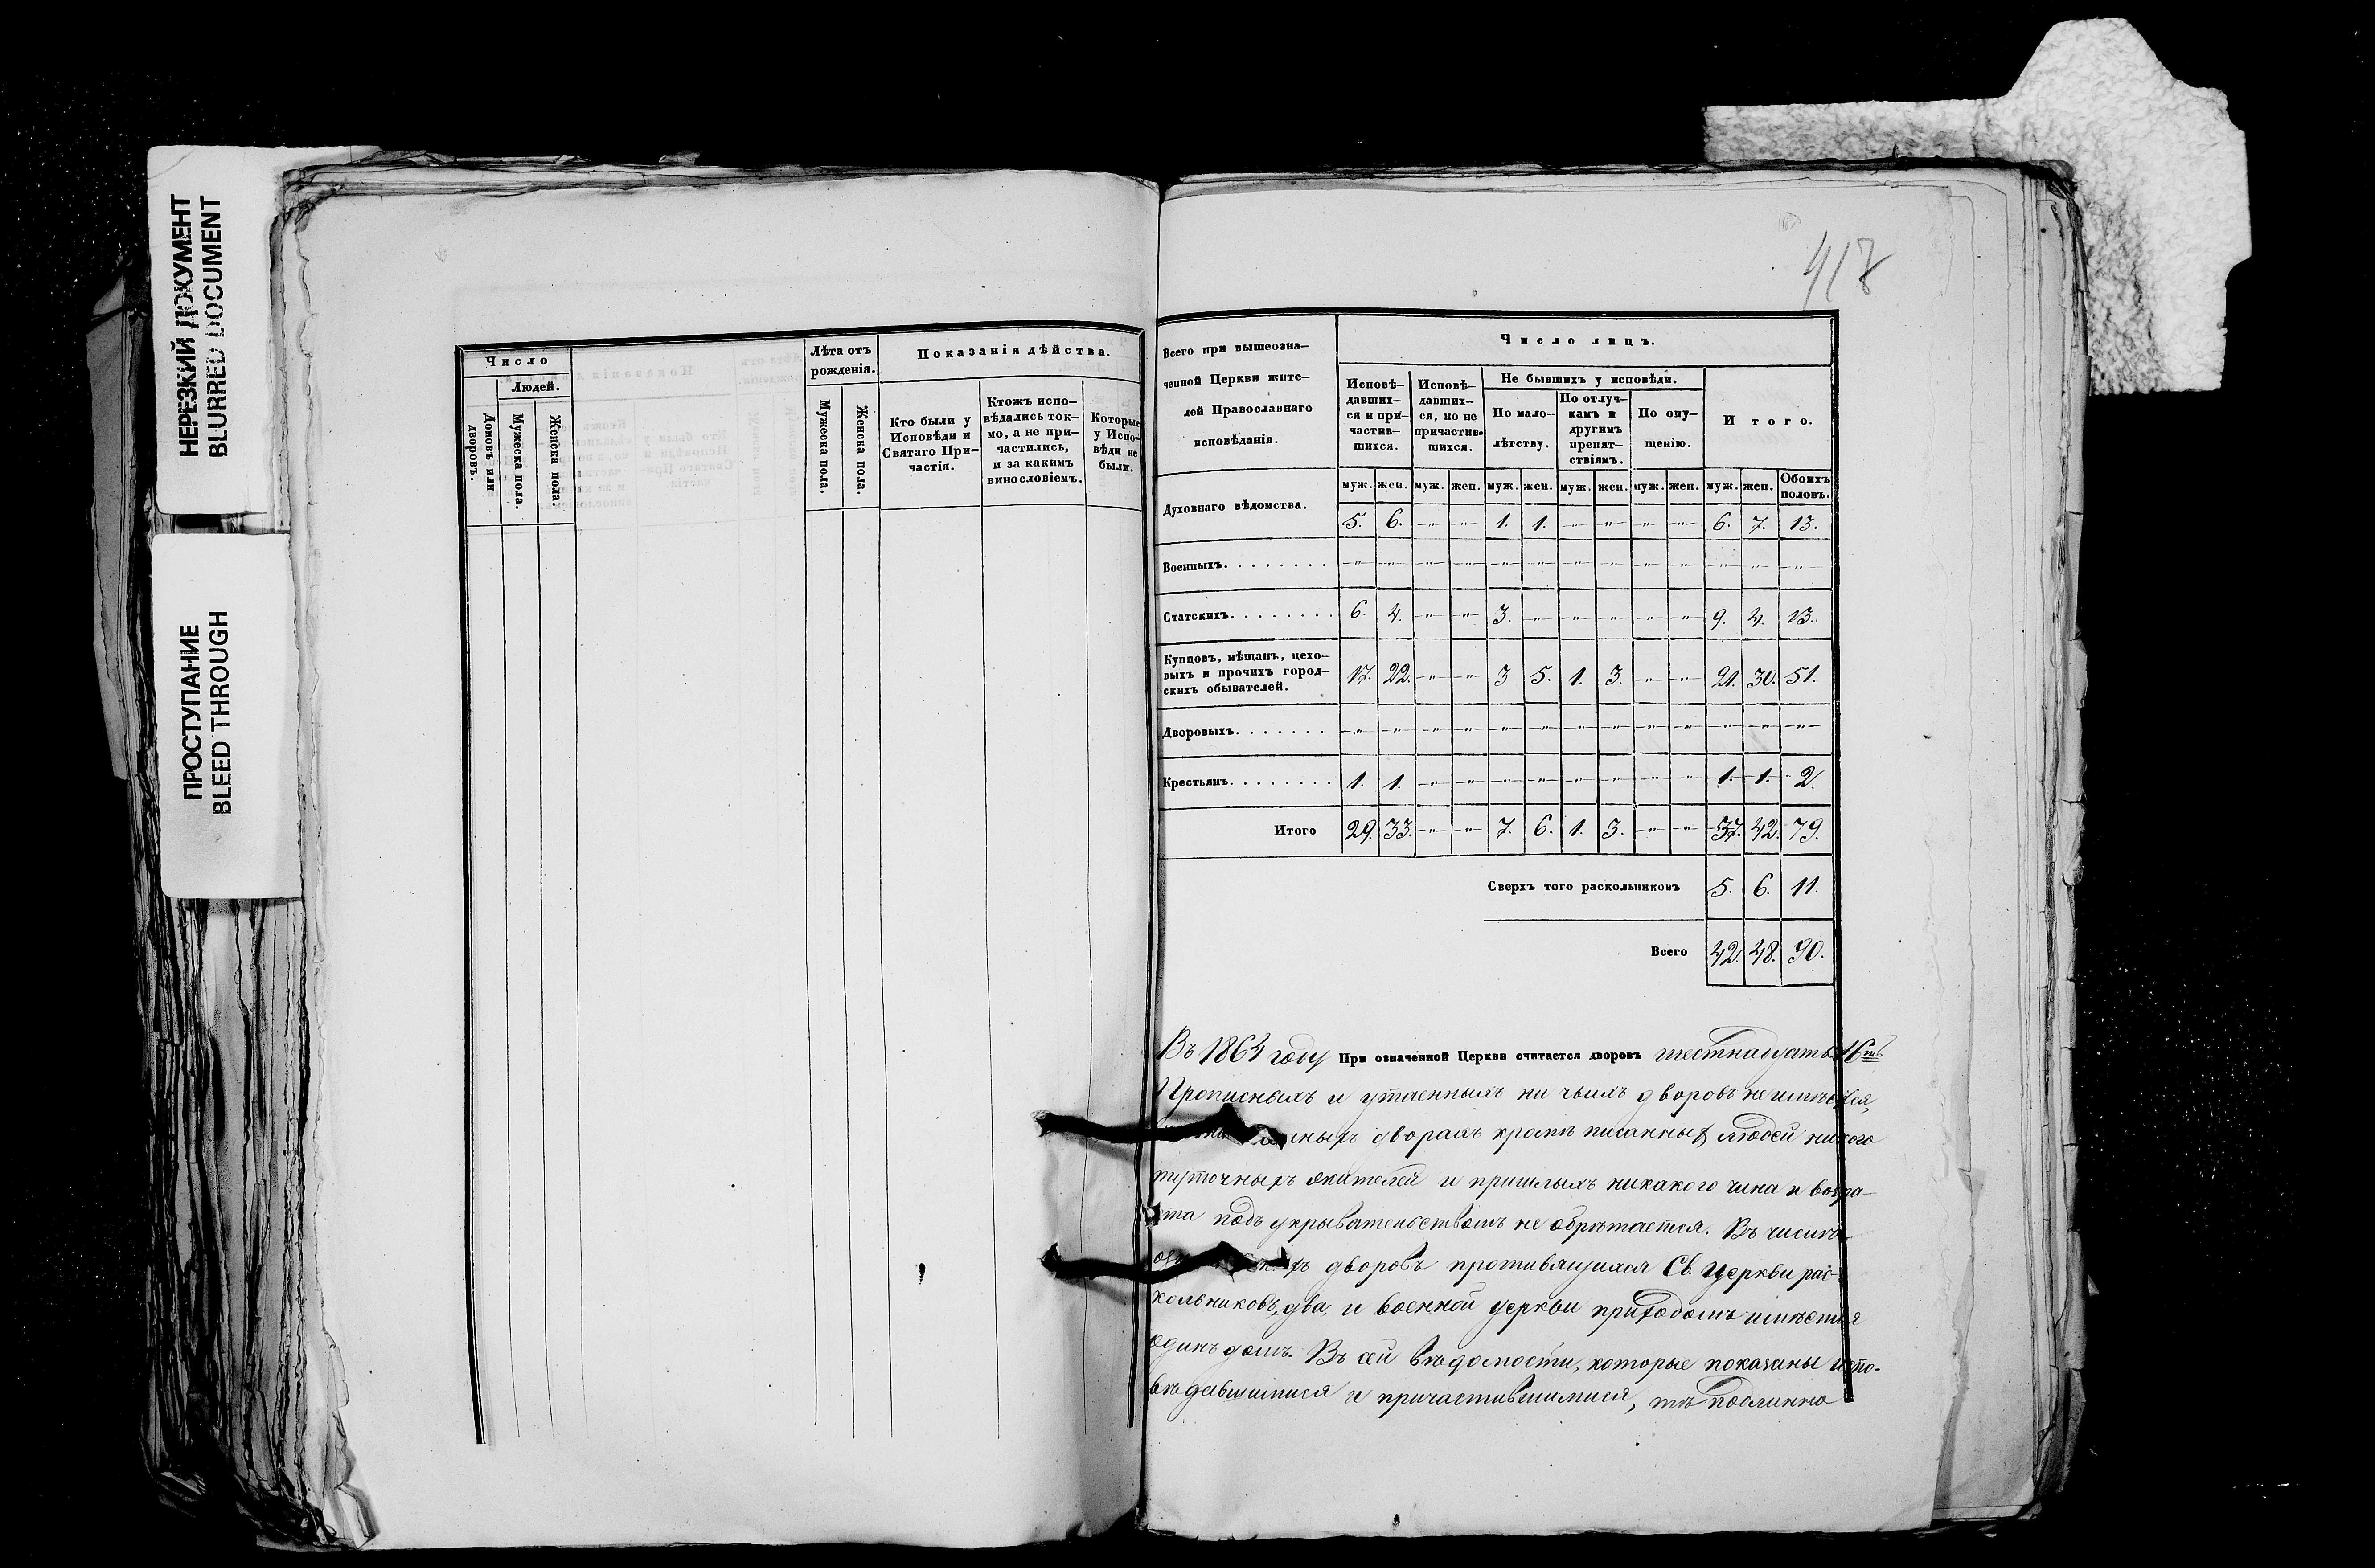 НЕРЕЗКИЙ ДОКУМЕНТ
BLURRED DOCUMENT
ПРОСТУПАНИЕ
BLEED THROUGH
Число
Людей.
Домовъ или дворовъ.
Мужеска пола.
Женска пола.
Лѣта отъ рожденія.
Мужеска пола.
Женска пола.
Показанія дѣйства.
Кто были у Исповѣди и Святаго Причастія.
Ктожъ исповѣдались токмо, а не причастились, и за какимъ винословіемъ.
Которые у Исповѣди не были.
417
Всего при вышеозначенной Церкви жителей Православнаго исповѣданія.
Число лицъ.
Исповѣдавшихся и причастившихся.
Исповѣдавшихся, но не причастившихся.
Не бывшихъ у исповѣди.
По малолѣтству.
По отлучкамъ и другимъ препятствіямъ.
По опущенію.
Итого.
муж. жен. муж. жен. муж. жен. муж. жен. муж. жен. муж. жен. Обоихъ половъ.
Духовнаго вѣдомства. 5. 6. -„- -„- 1. 1. -„- -„- -„- -„- 6. 7. 13.
Военныхъ. -„- -„- -„- -„- -„- -„- -„- -„- -„- -„- -„- -„- -„-
Статскихъ. 6. 4. -„- -„- 3. -„- -„- -„- -„- -„- 9. 4. 13.
Купцовъ, мѣщанъ, цеховыхъ и прочихъ городскихъ обывателей. 17. 22. -„- -„- 3 5. 1. 3. -„- -„- 21. 30. 51.
Дворовыхъ. -„- -„- -„- -„- -„- -„- -„- -„- -„- -„- -„- -„- -„-
Крестьянъ. 1. 1. -„- -„- -„- -„- -„- -„- -„- -„- 1. 1. 2.
Итого 29. 33. -„- -„- 7. 6. 1. 3. -„- -„- 37. 42. 79.
Сверхъ того раскольниковъ 5. 6. 11.
Всего 42. 48. 90.
Въ 1864 году При означенной Церкви считается дворовъ шестнадцать 16ть
Прописныхъ и утаенныхъ ни чьихъ дворовъ не имѣется,
дворахъ кромѣ писанныхъ людей никого
жителей и пришлыхъ никакого чина и возра-
ста подъ укрывательствомъ не обрѣтается. Въ числѣ
дворовъ противящихся Св. Церкви рас-
кольниковъ, два, и военной церкви приходомъ имѣется
одинъ домъ. Въ сей вѣдомости, которые показаны испо-
вѣдавшимися и причастившимися, тѣ подлинно